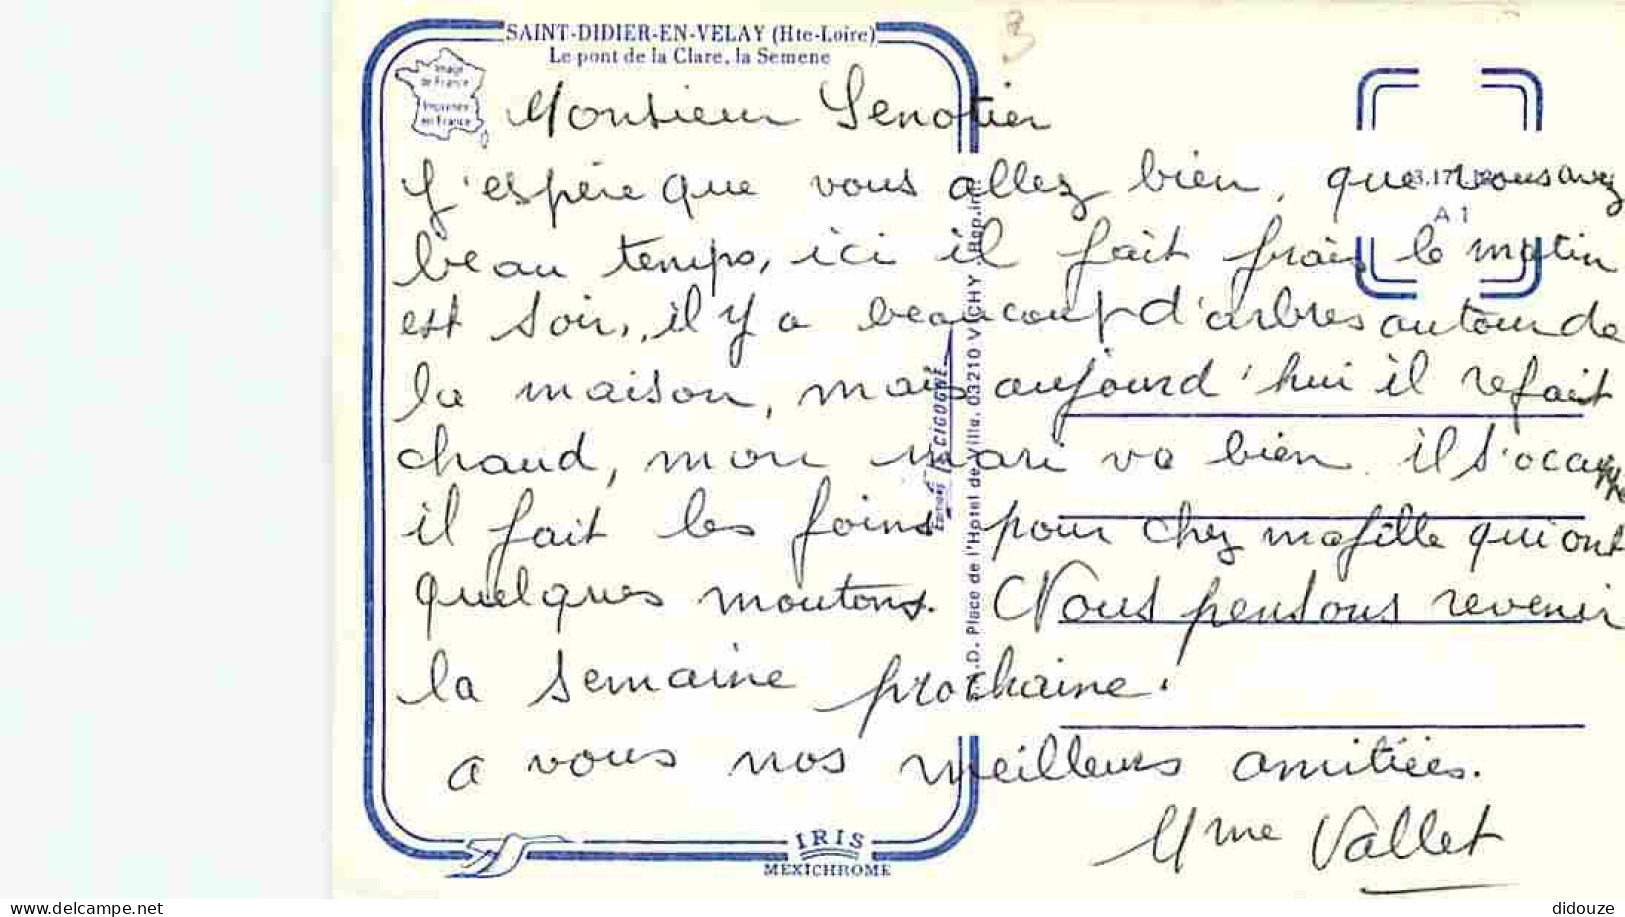 SAINT-DIDIER-EN-VELAY (Hte-Loire)
Le pont de la Clare, la Semene
Image
de France
Imprimée
en France
Monsieur Senotier
J'espère que vous allez bien, que vous avez
beau temps, ici il fait frais le matin
est soir, il y a beaucoup d'arbres autour de
la maison, mais aujourd'hui il refait
chaud, mon mari va bien il s'ocaupe
il fait les foins pour chez ma fille qui ont
quelques moutons. Nous pensons revenir
la semaine prochaine.
a vous nos meilleurs amitiées.
Mme Vallet
A 1
Editions LA CIGOGNE
.D. Place de l'Hôtel de Ville, 03210 VICHY
IRIS
MEXICHROME
www.delcampe.net
didouze